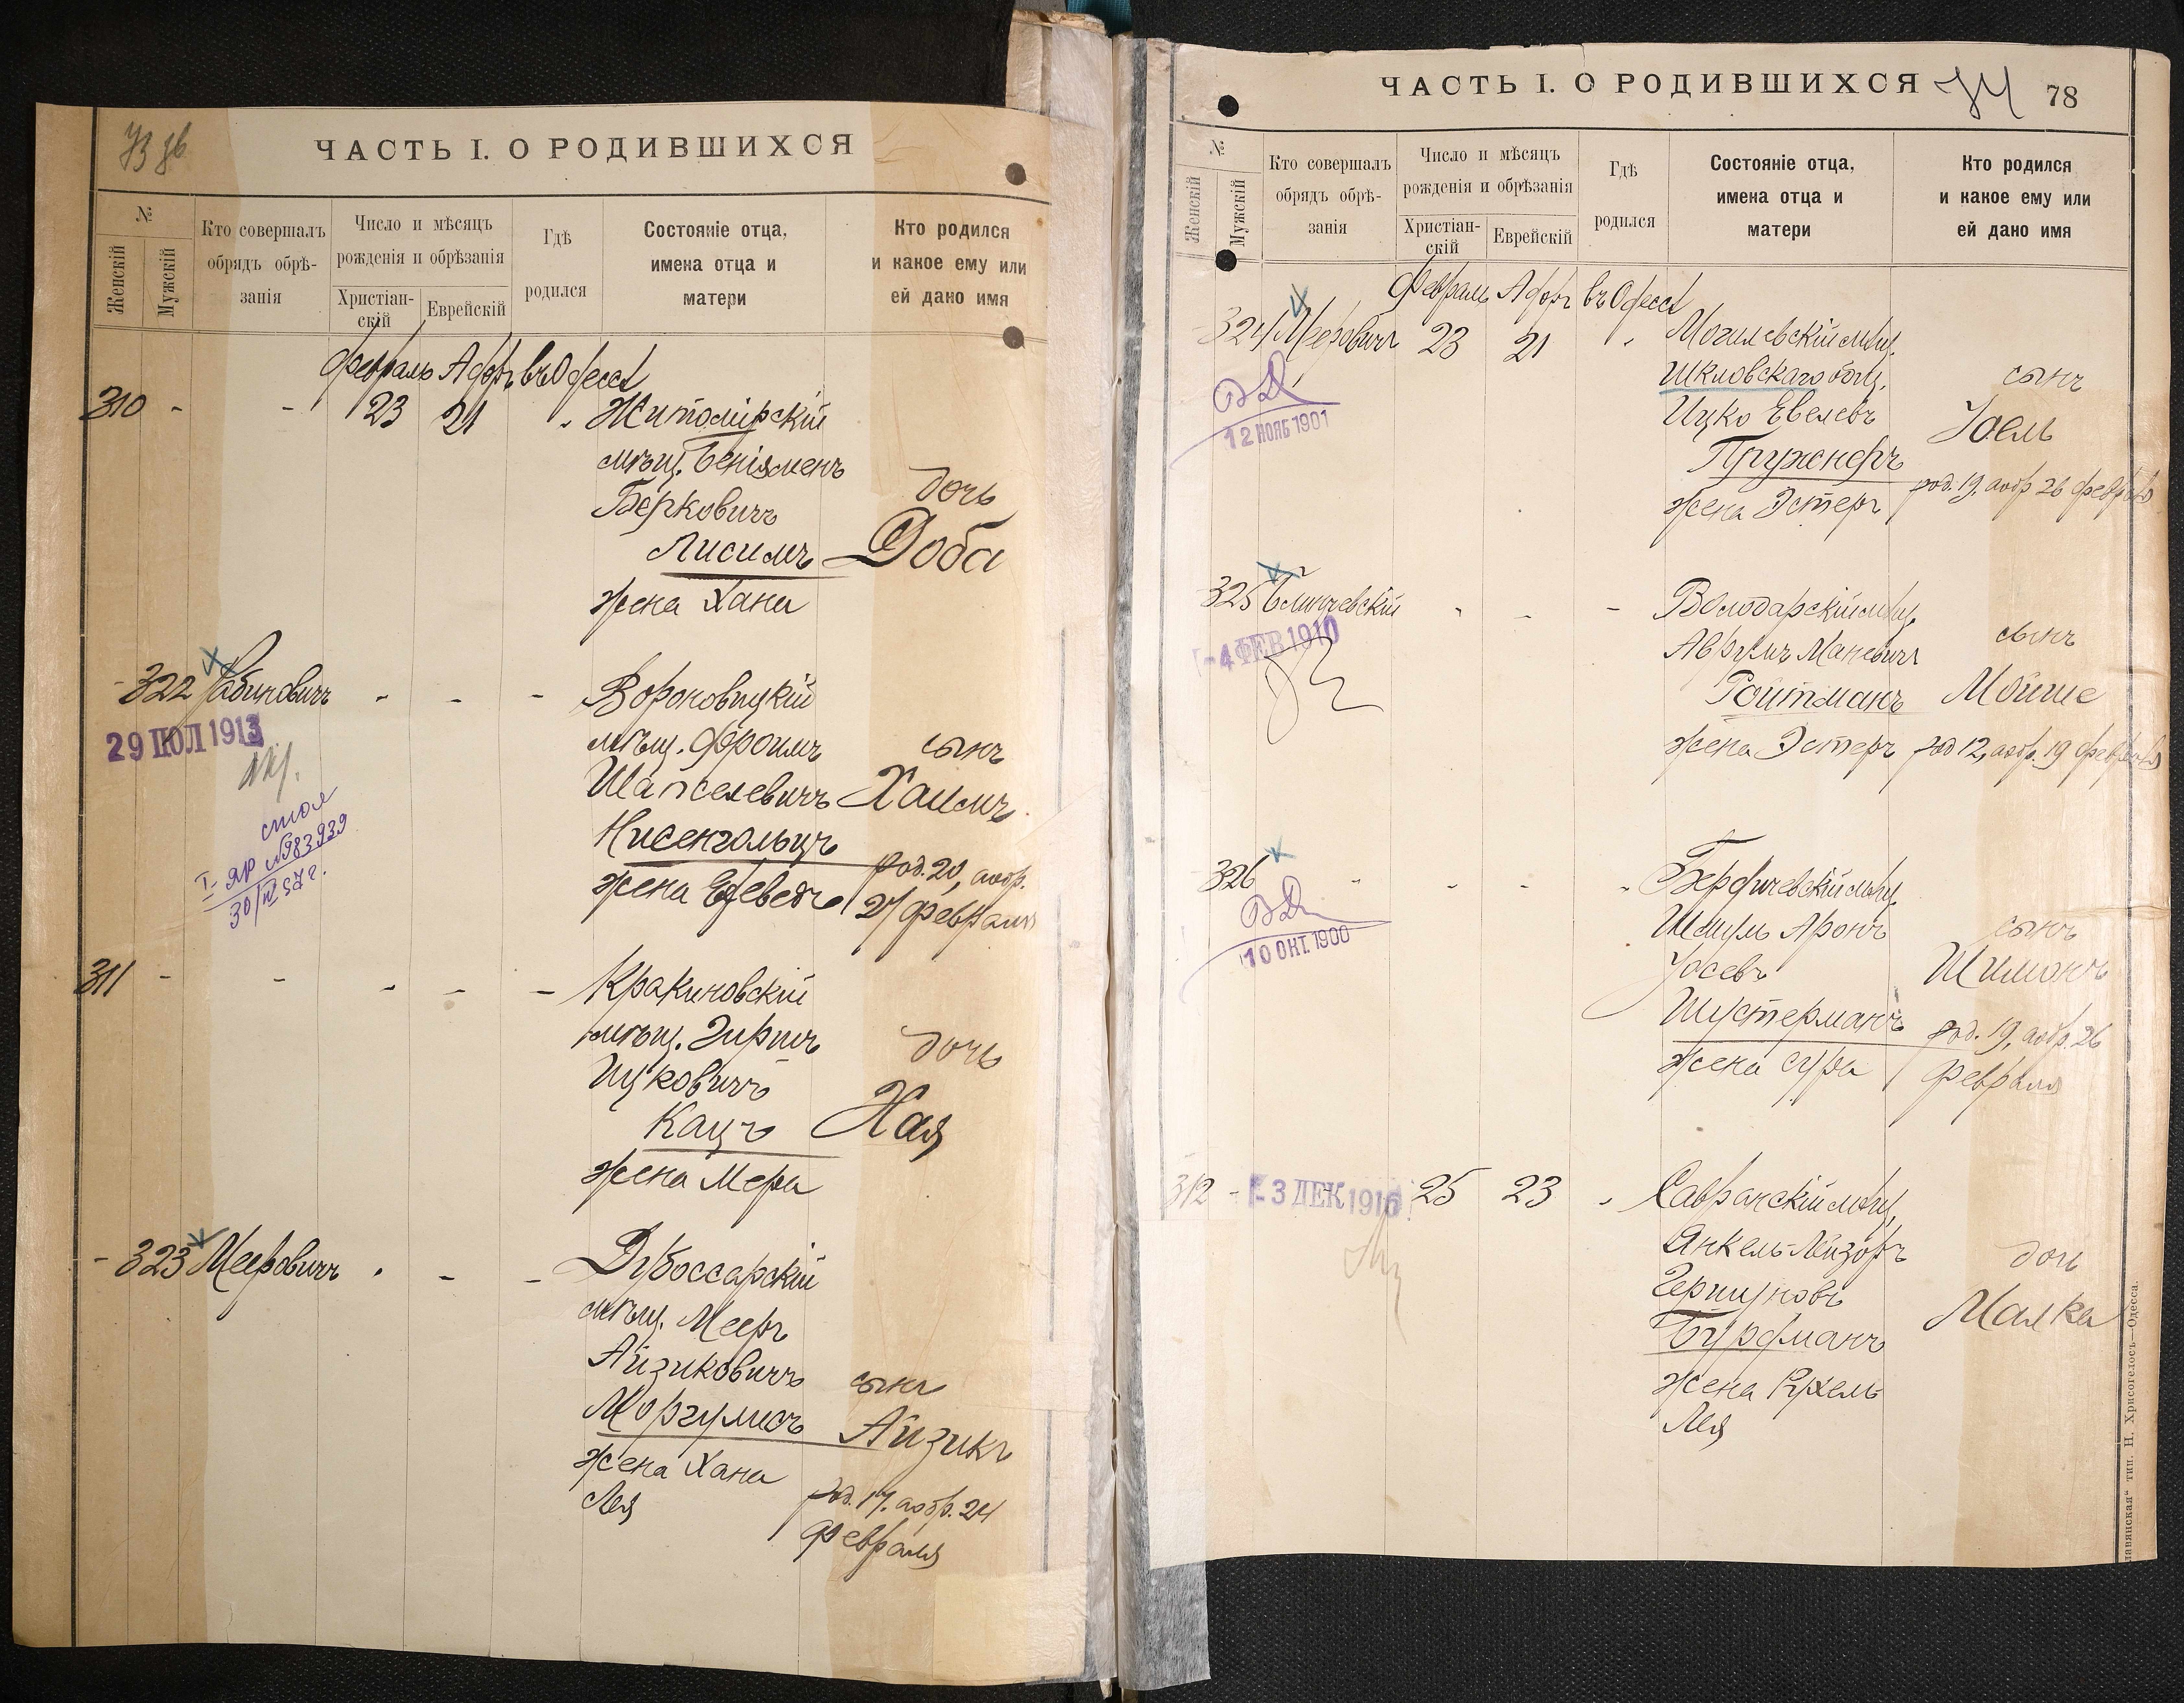 73 зв
ЧАСТЬ I. О РОДИВШИХСЯ
№
Женскій
Мужскій
Кто совершалъ
обрядъ обрѣ-
занія
Число и мѣсяцъ
рожденія и обрѣзанія
Христіан-
скій
Еврейскій
Гдѣ
родился
Состояніе отца,
имена отца и
матери
Кто родился
и какое ему или
ей дано имя
Февраль Адаръ въ Одессѣ
310 - - 23 21 Житомірскій
мѣщ. Беніяменъ
Берковичъ
Лисимъ
жена Хана
дочь
Доба
322 Рабиновичъ - - - Вороновицкій
мѣщ. Фроимъ
Шапселевичъ
Нисенгольцъ
жена
сынъ
Хаимъ
род. 20, аобр.
27 февраля
29 ІЮЛ 1913
стол
I- ЯР №983939
30/VI 57 г.
311 - - - - - Кракиновскій
мѣщ. Зирпъ
Ицковичъ
Кацъ
жена Мера
дочь
Хая
- 323 Мееровичъ - - - Дубоссарскій
мѣщ. Мееръ
Айзиковичъ
Моргулисъ
жена Хана
Лея
сынъ
Айзикъ
род. 17, аобр. 24
февраля
ЧАСТЬ I. О РОДИВШИХСЯ
74 78
№
Женскій
Мужскій
Кто совершалъ
обрядъ обрѣ-
занія
Число и мѣсяцъ
рожденія и обрѣзанія
Христіан-
скій
Еврейскій
Гдѣ
родился
Состояніе отца,
имена отца и
матери
Кто родился
и какое ему или
ей дано имя
Февраль Адаръ въ Одессѣ
324 Мееровичъ 23 21 Могилевскій мѣщ.
Шкловскаго общ.
Ицко Евелевъ
Пружнеръ
жена Эстеръ
сынъ
Іоель
род. 19, аобр 26 февраля
12 НОЯБ 1901
325 - - - Володарскій мѣщ.
Аврумъ Маневичъ
Ройтманъ
жена Эстеръ
сынъ
Мойше
род 12, аобр. 19 февраля
-4 ФЕВ 1910
326 - - - - Бердичевскій мѣщ.
Шмулъ Аронъ
Іосевъ
Шустерманъ
жена Сура
сынъ
Шимонъ
род. 19, аобр. 26
февраля
10 ОКТ. 1900
312 - -3 ДЕК 1916 25 23 Савранскій мѣщ.
Янкель-Лейзоръ
Гершуновъ
Бурдманъ
жена Рухель
Лея
дочь
Малка
лавянская" тип. Н. Хрисогелосъ—Одесса.